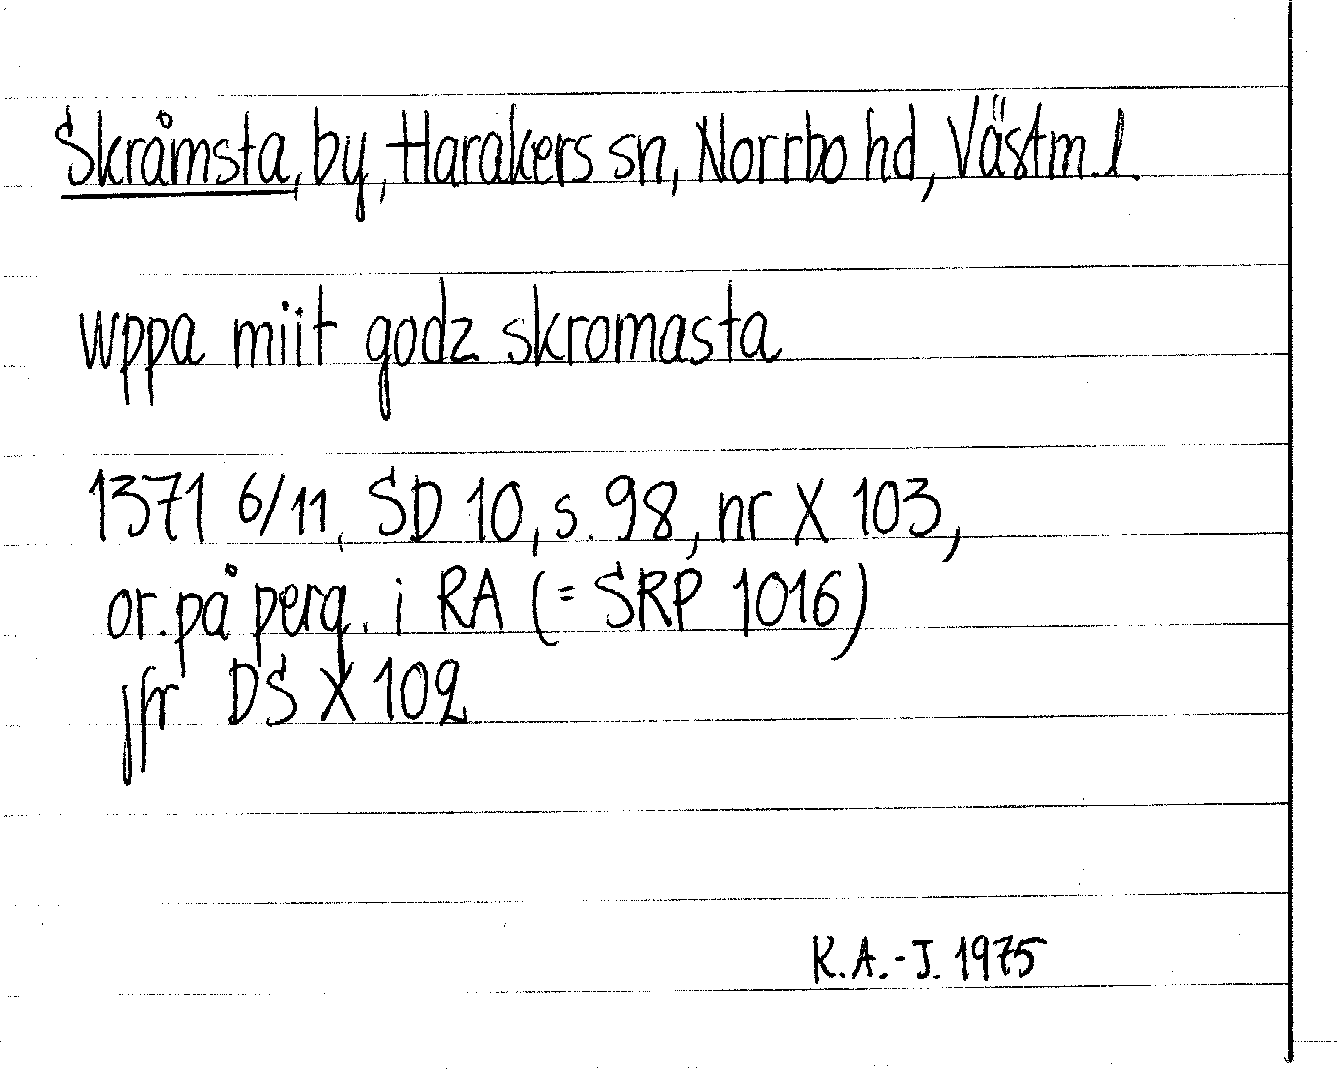 Skråmsta, by, Harakers sn, Norrbo hd, Västm. l.
wppa miit godz skromasta
1371 6/11, SD 10, s. 98, nr X 103,
or. på perg. i RA (= SRP 1016)
jfr DS X 102
K.A.-J. 1975